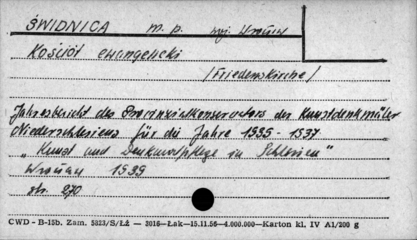 ŚWIDNICA m. p. woj. Wrocław
Kościół ewangelicki
/Friedenskirche/
Jahresbericht des Provinzialkonservators der Kunstdenkmäler
Niederschlesiens für die Jahre 1935-1937
„Kunst und Denkmalpflege in Schlesien"
Wrocław 1939
str. 270
CWD - B-15b. Zam. 5823/S/ŁŻ — 3016—Łak—15.11.56—4.000.000—Karton kl. IV A1/200 g